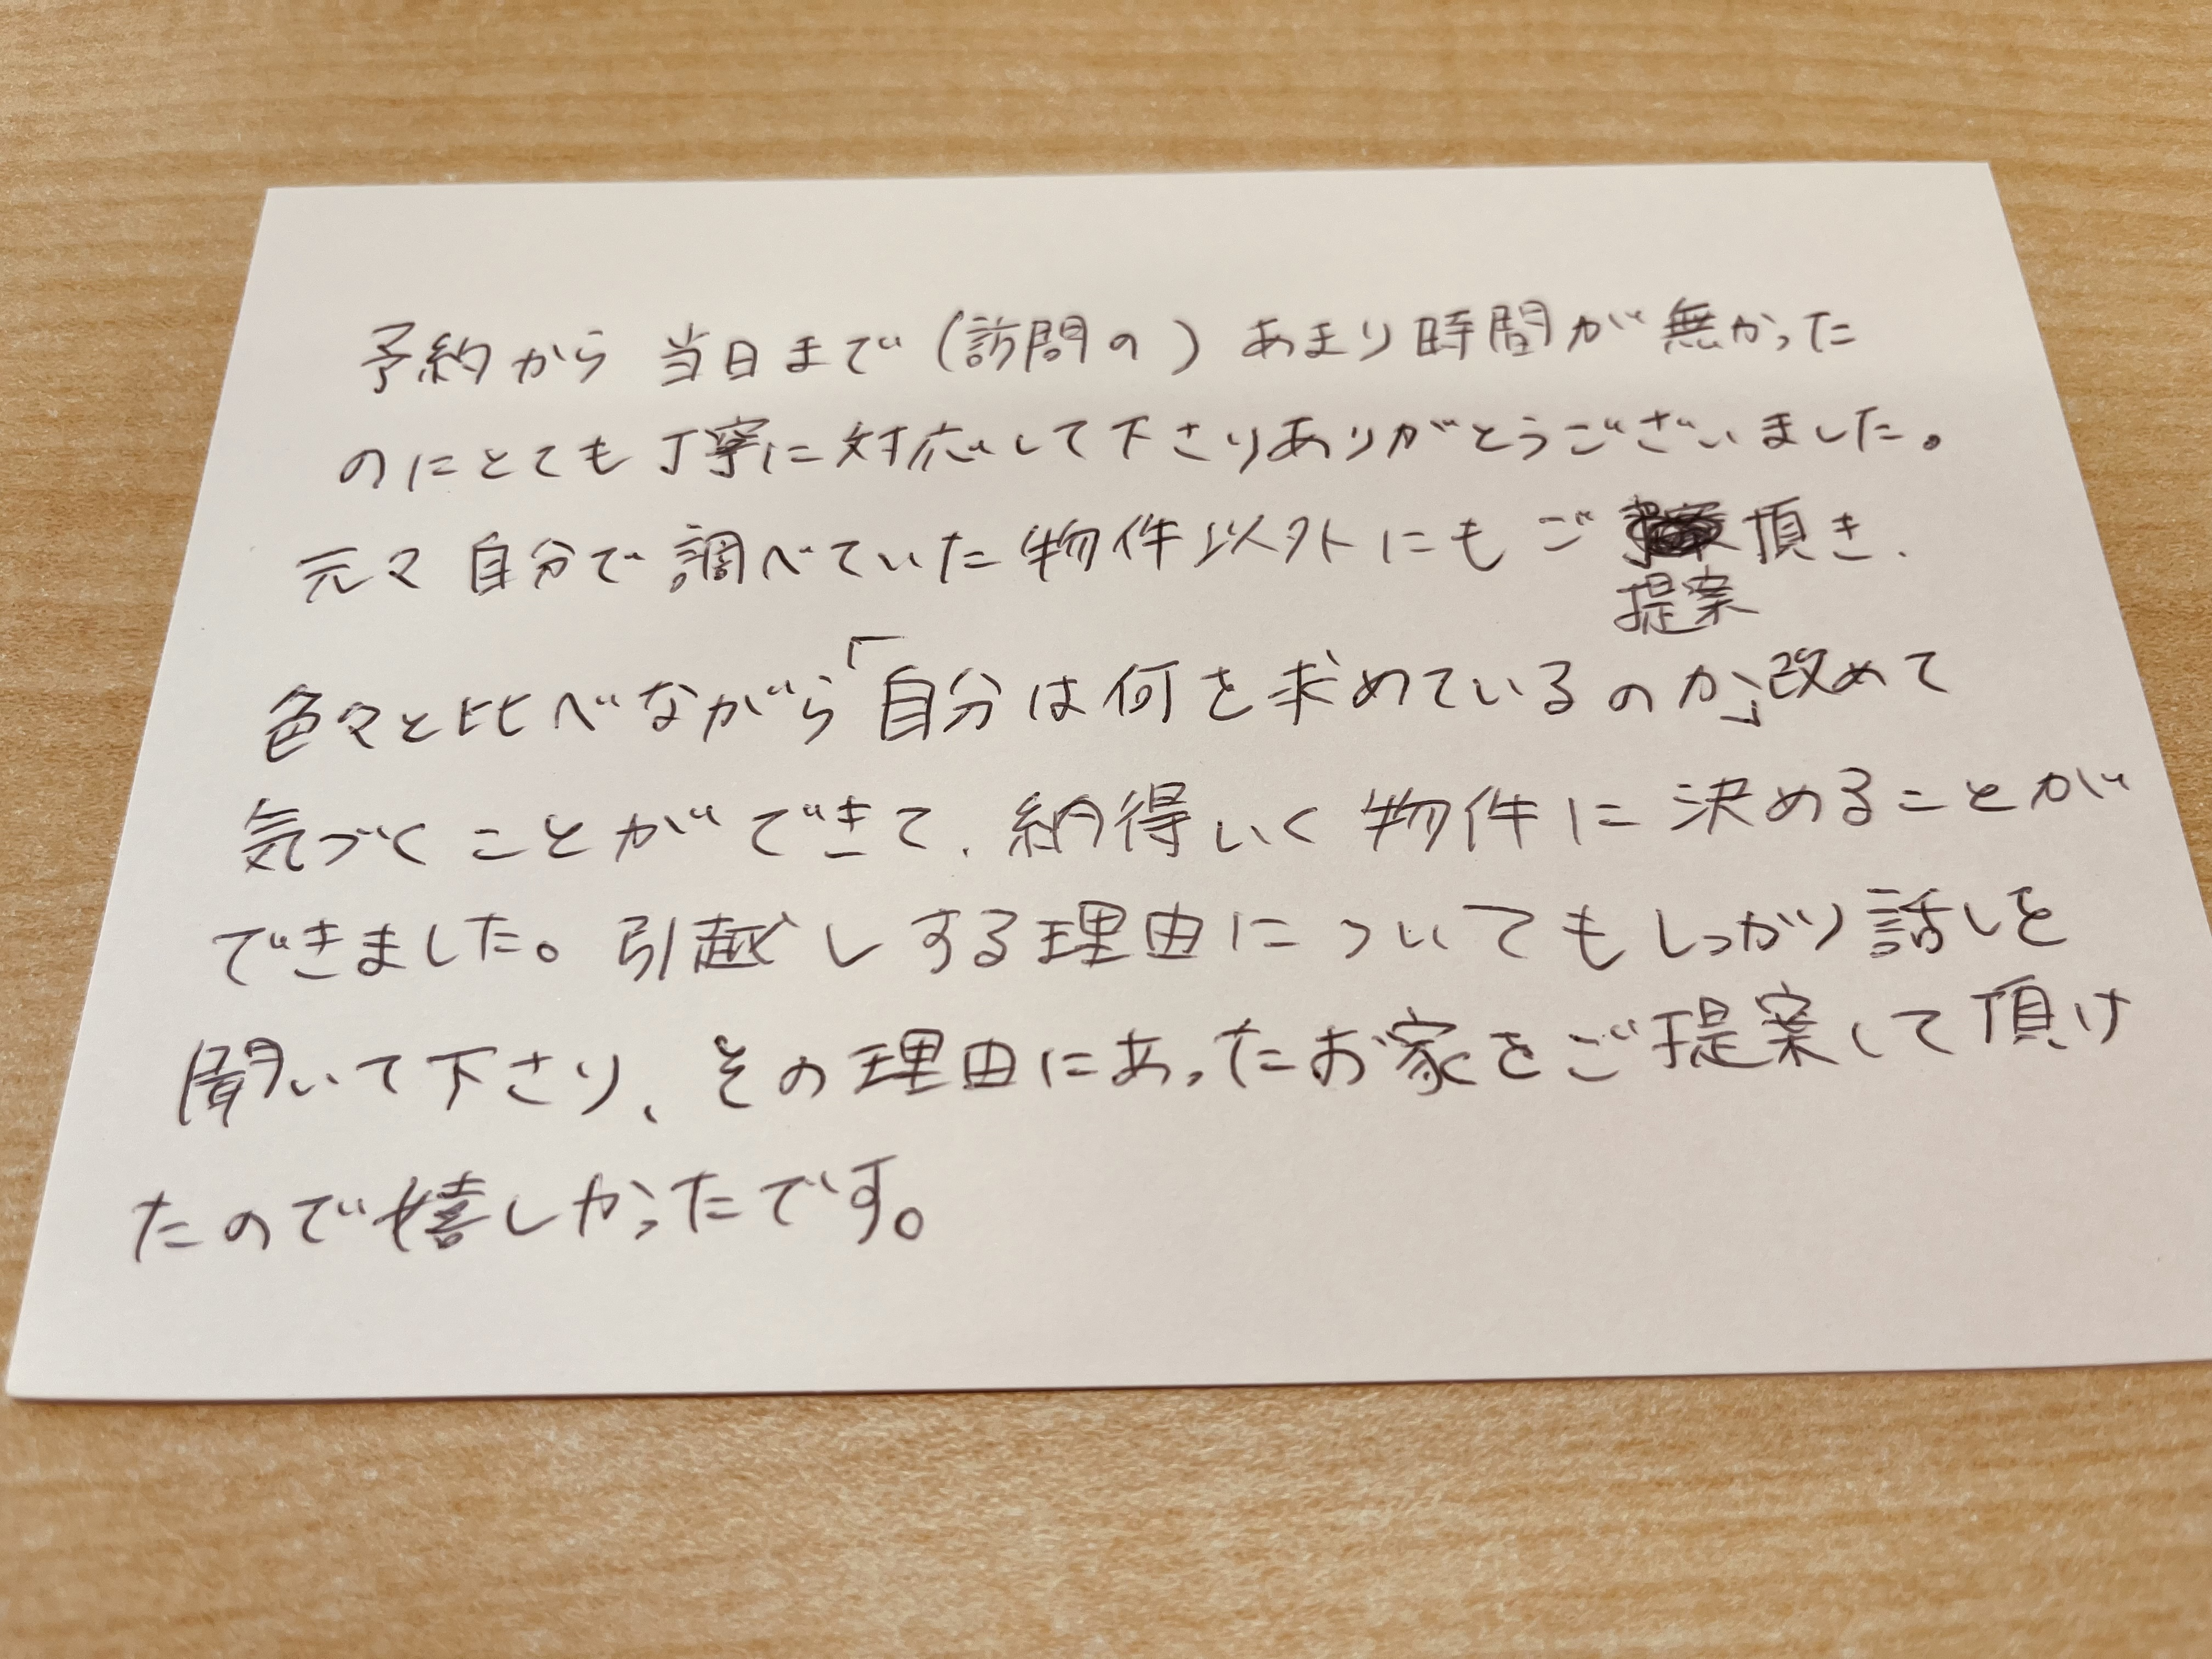 予約から当日まで(訪問の)あまり時間が無かった
のにとても丁寧に対応して下さりありがとうございました。
元々自分で調べていた物件以外にもご提案頂き、
色々と比べながら「自分は何を求めているのか」改めて
気づくことができて、納得いく物件に決めることが
できました。引越しする理由についてもしっかり話しを
聞いて下さり、その理由にあったお家をご提案して頂け
たので嬉しかったです。